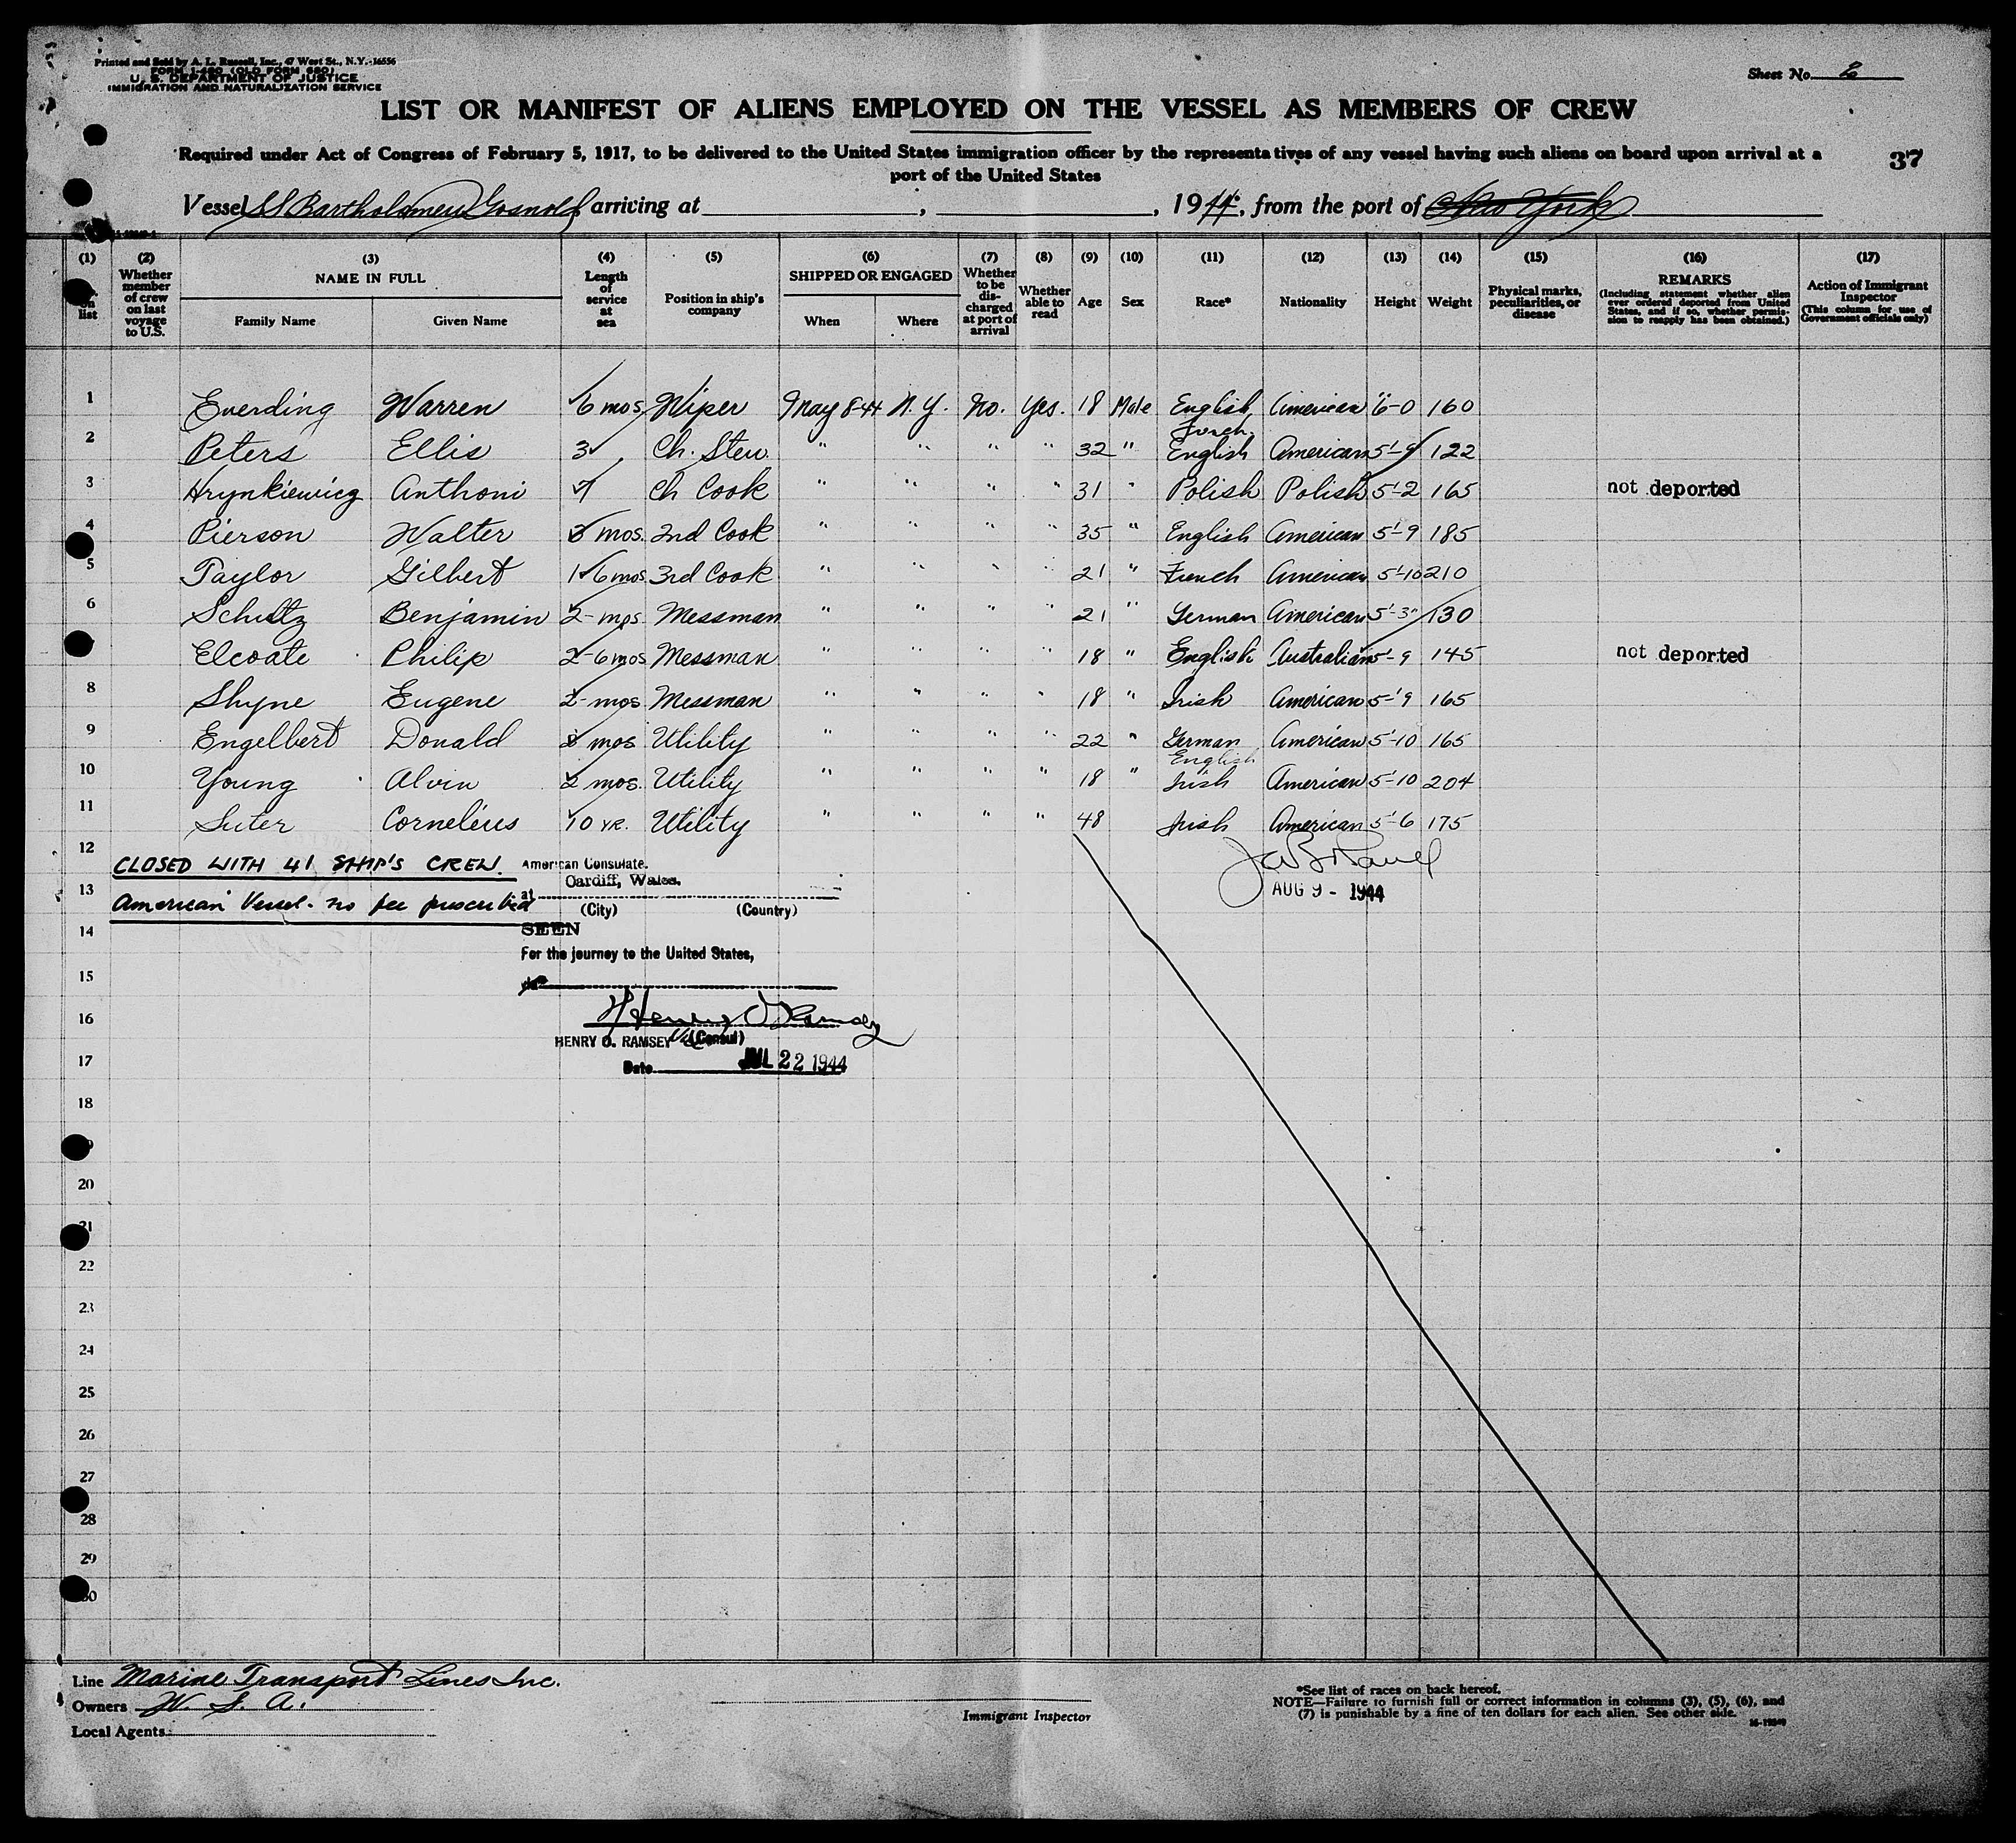 Printed and Sold by A. L. Russell, Inc., 47 West St., N.Y.-16556
FORM I-480 (OLD FORM 680)
U. S. DEPARTMENT OF JUSTICE
IMMIGRATION AND NATURALIZATION SERVICE
Sheet No. 2
LIST OR MANIFEST OF ALIENS EMPLOYED ON THE VESSEL AS MEMBERS OF CREW
Required under Act of Congress of February 5, 1917, to be delivered to the United States immigration officer by the representatives of any vessel having such aliens on board upon arrival at a
port of the United States
37
Vessel SS Bartholomew Gosnold arriving at , , 1944, from the port of New York
(1) (2) (3) (4) (5) (6) (7) (8) (9) (10) (11) (12) (13) (14) (15) (16) (17)
on list
Whether member of crew on last voyage to U.S.
NAME IN FULL
Family Name Given Name
Length of service at sea
Position in ship's company
SHIPPED OR ENGAGED
When Where
Whether to be discharged at port of arrival
Whether able to read
Age Sex Race* Nationality Height Weight
Physical marks, peculiarities, or disease
REMARKS
(Including statement whether alien ever ordered deported from United States, and if so, whether permission to reapply has been obtained.)
Action of Immigrant Inspector
(This column for use of Government officials only)
1 Everding Warren 6 mos Wiper May 8-44 N.Y. No. Yes. 18 Male English, French. American 6-0 160
2 Peters Ellis 3 Ch. Stew. " " " " 32 " English American 5'-9 122
3 Hrynkiewicz Anthoni Ch Cook " " " " 31 " Polish Polish 5'-2 165 not deported
4 Pierson Walter mos. 2nd Cook " " " " 35 " English American 5'-9 185
5 Taylor Gilbert 1-6 mos 3rd Cook " " " " 21 " French American 5'-10 210
6 Schultz Benjamin 2- mos. Messman " " " " 21 " German American 5'-3" 130
Elcoate Philip 2-6 mos Messman " " " " 18 " English Australian 5'-9 145 not deported
8 Shyne Eugene 2- mos Messman " " " " 18 " Irish American 5-'9 165
9 Engelbert Donald mos Utility " " " " 22 " German American 5'-10 165
10 Young Alvin 2 mos. Utility " " " " 18 " English Irish American 5'-10 204
11 Suter Cornelius 10 YR. Utility " " " " 48 Irish American 5'-6 175
12
CLOSED WITH 41 SHIP'S CREW.
American Consulate.
Cardiff, Wales.
AUG 9 - 1944
13
American Vessel - no fee prescribed
at
(City) (Country)
14
SEEN
For the journey to the United States,
15
16
Henry O Ramsey
HENRY O. RAMSEY Vice (Consul)
17
Date JUL 22 1944
18
20
21
22
23
24
25
26
27
28
29
30
Line Marine Transport Lines Inc.
Owners W. S. A.
Local Agents
Immigrant Inspector
*See list of races on back hereof.
NOTE—Failure to furnish full or correct information in columns (3), (5), (6), and
(7) is punishable by a fine of ten dollars for each alien. See other side.